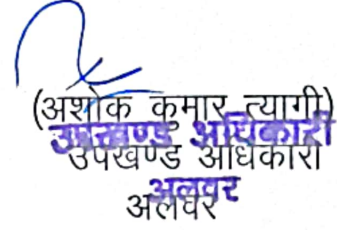 (अशोक कुमार त्यागी)
उपखण्ड अधिकारी
उपखण्ड अधिकारी
अलवर
अलवर